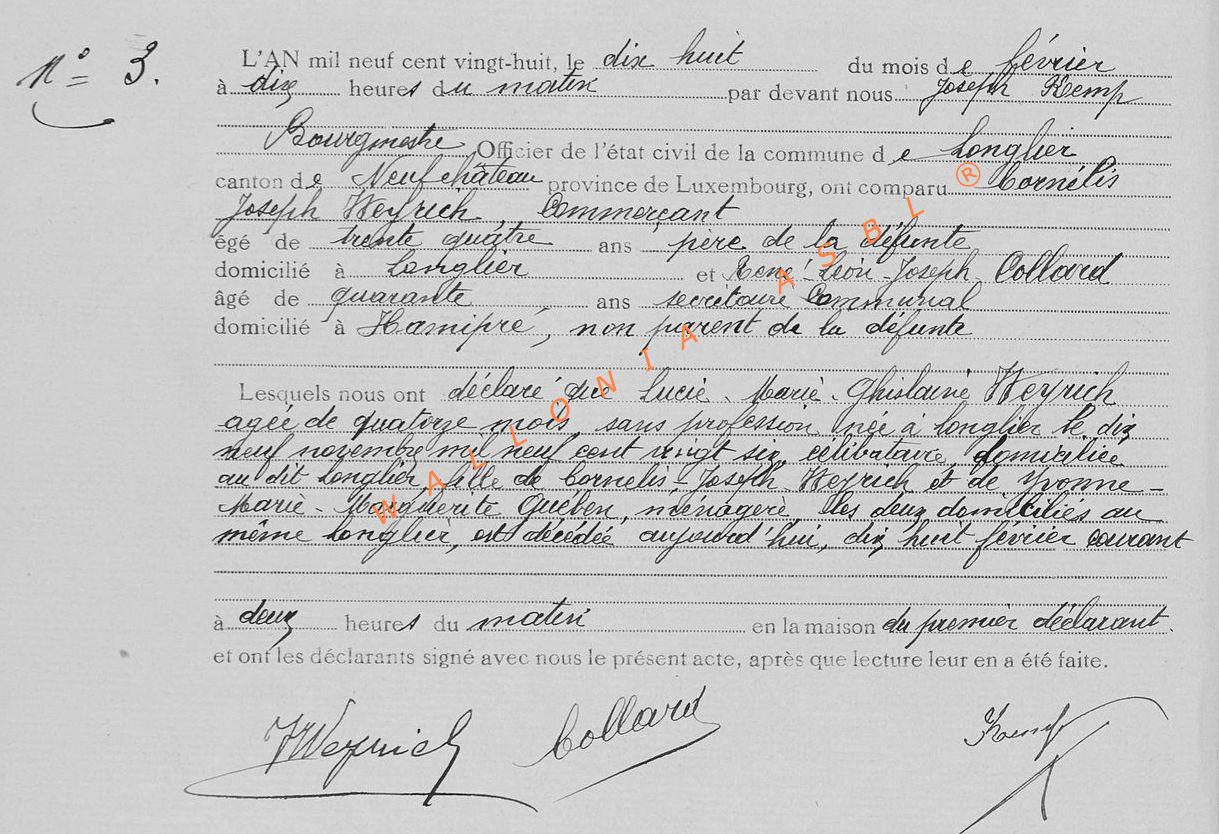 N° 3.
L'AN mil neuf cent vingt-huit, le dix huit du mois de février
à dix heures du matin par devant nous Joseph Kemp
Bourgmestre Officier de l'état civil de la commune de Longlier
canton de Neufchâteau province de Luxembourg, ont comparu Cornélis
Joseph Weyrich, Commerçant
égé de trente quatre ans père de la défunte
domicilié à Longlier et René-Léon-Joseph Collard
âgé de quarante ans secrétaire Communal
domicilié à Hamipré, non parent de la défunte
Lesquels nous ont déclaré que Lucie-Marie-Ghislaine Weyrich
agée de quatorze mois, sans profession, née à Longlier le dix
neuf novembre mil neuf cent vingt six, célibataire, domiciliée
au dit Longlier, fille de Cornélis-Joseph Weyrich et de Yvonne-
Marie-Marguerite Quében, ménagère, les deux domiciliés au
même Longlier, est décédée aujourd'hui, dix huit février courant
à deux heures du matin en la maison du premier déclarant.
et ont les déclarants signé avec nous le présent acte, après que lecture leur en a été faite.
JWeyrich Collard Kemp
WALLONIA ASBL ®